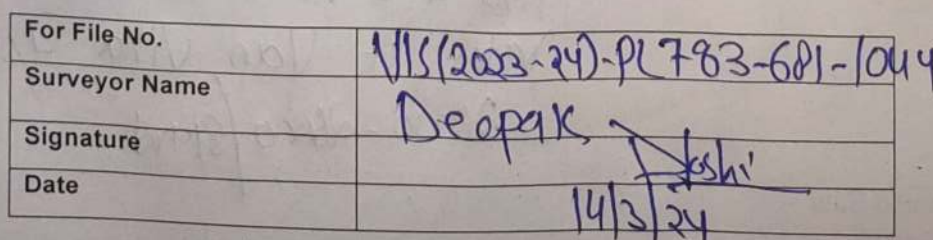 For File No. VIS(2023-24)-PL783-681-1044
Surveyor Name Deepak
Signature Joshi
Date 14/3/24